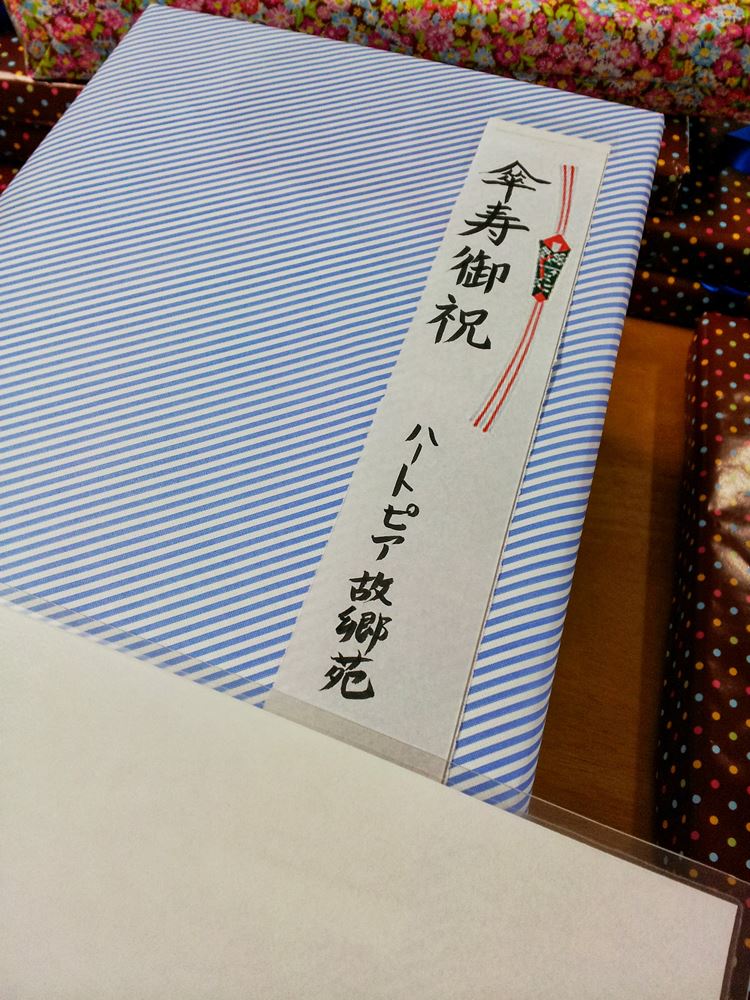 傘寿御祝
ハートピア故郷苑